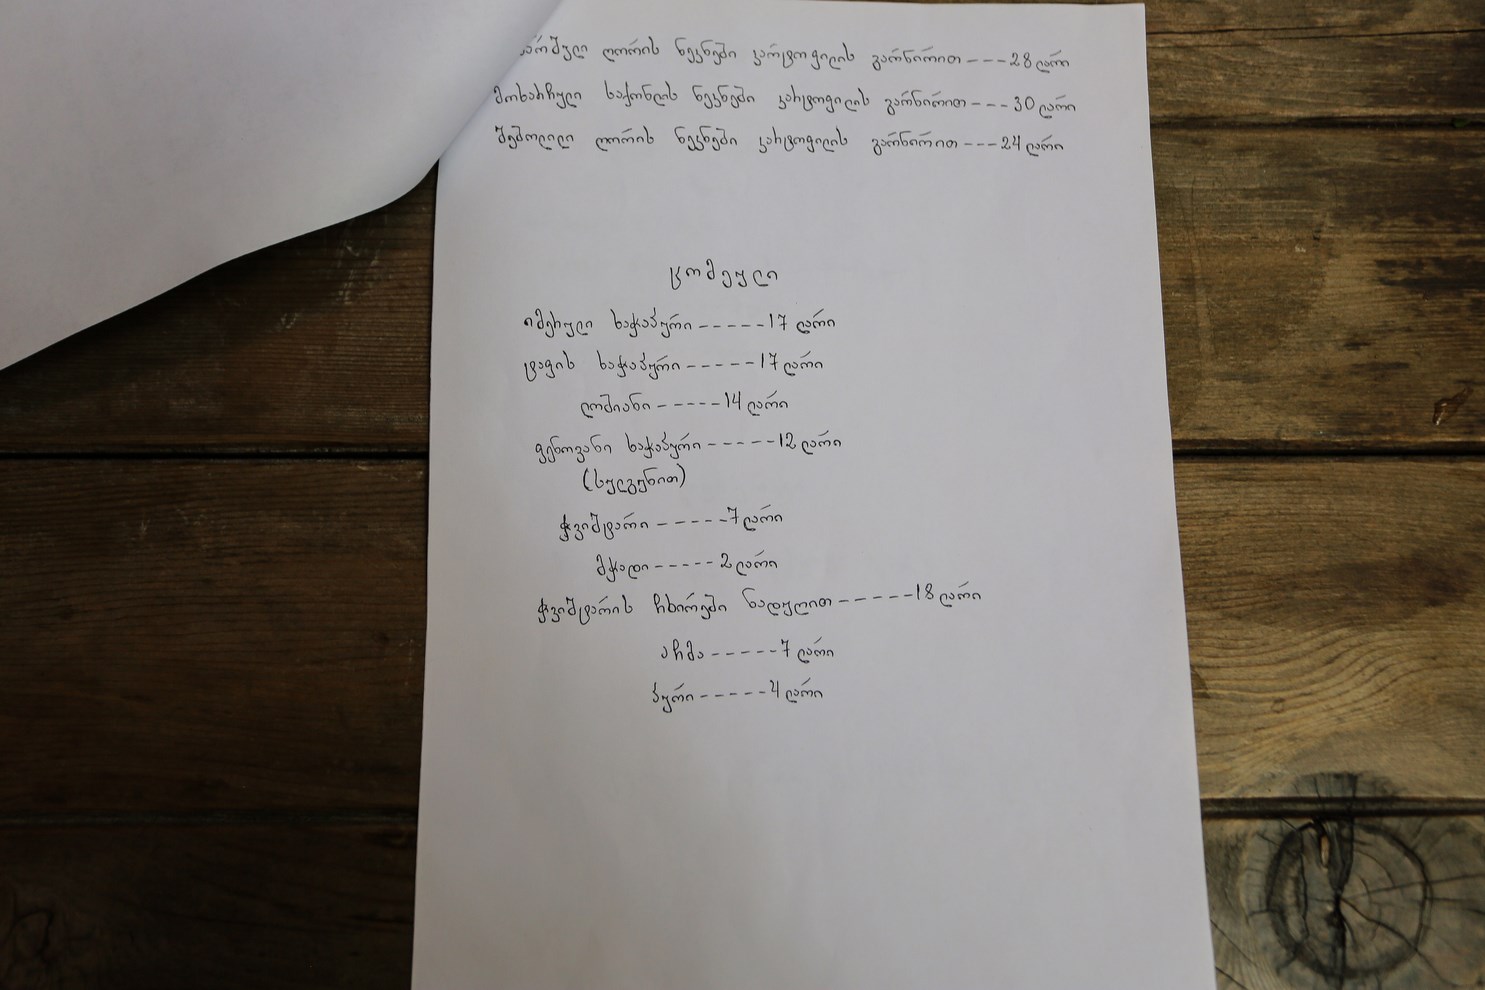 ღორის ნეკნები კარტოფილის გარნირით---28 ლარი
მოხარჩული საქონლის ნეკნები კარტოფილის გარნირით---30 ლარი
შებოლილი ღორის ნეკნები კარტოფილის გარნირით---24 ლარი
ცომეული
იმერული ხაჭაპური-----17 ლარი
ტაფის ხაჭაპური-----17 ლარი
ლობიანი-----14 ლარი
ფენოვანი ხაჭაპური-----12 ლარი
(სულგუნით)
ჭვიშტარი-----7 ლარი
მჭადი-----2 ლარი
ჭვიშტარის ჩხირები ნადუღით-----18 ლარი
აჩმა-----7 ლარი
პური-----4 ლარი